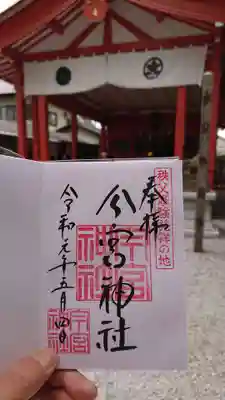 秩父霊場発祥の地
奉拝
今宮神社
令和元年五月四日
今宮
神社
今宮
神社